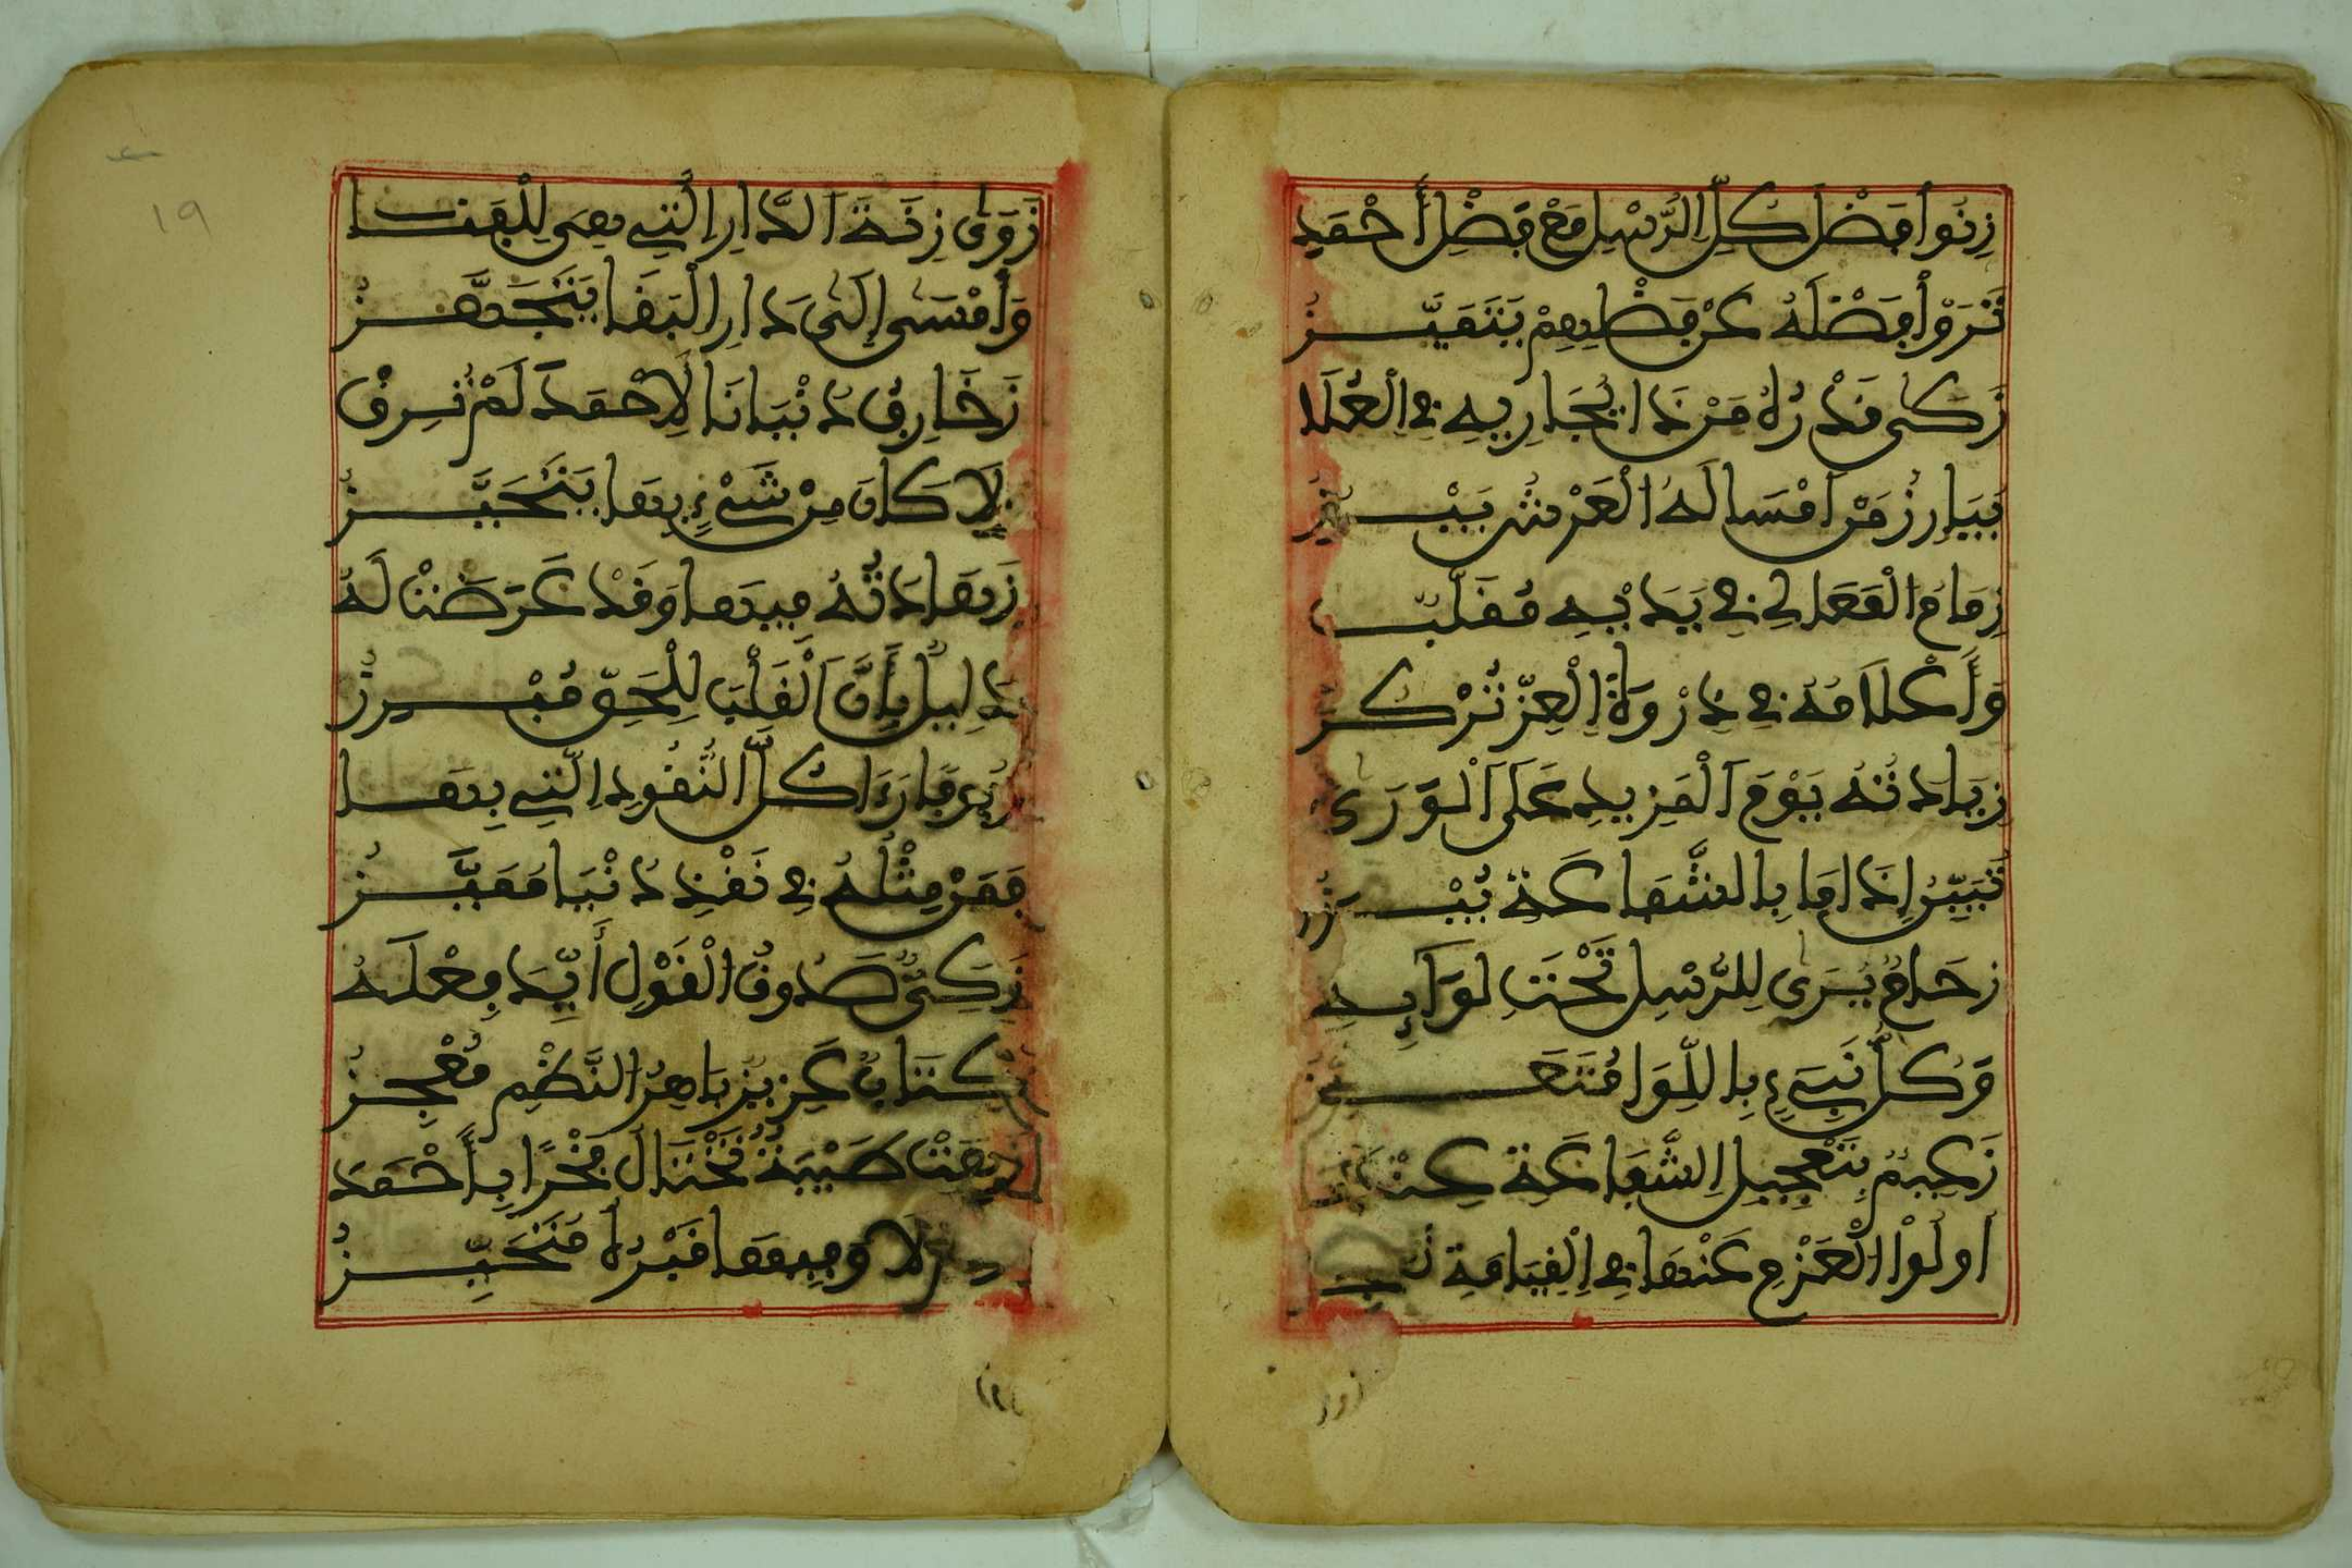 زِنُوا فَضْلَ كُلِّ الرُّسْلِ مَعْ فَضْلِ أَحْمَدِ
تَرَوْا فَضْلَهُ عَنْ فَضْلِهِمْ يَتَمَيَّزُ
زَكَى قَدْرُهُ مَنْ ذَا يُجَارِيهِ فِي الْعُلَا
يُبَارِزُ مَنْ أَمْسَا لَهُ الْعَرْشُ
زِمَامُ الْمَعَالِي فِي يَدَيْهِ مُقَلَّبٌ
وَأَعْلَامُهُ فِي ذِرْوَةِ الْعِزِّ تُرْكَزُ
زِيَادَتُهُ يَوْمَ الْمَزِيدِ عَلَى الْوَرَى
تَبَيَّنُ إِذَا مَا بِالشَّفَاعَةِ
زِحَامٌ يُرَى لِلرُّسْلِ تَحْتَ لِوَآيِهِ
وَكُلُّ نَبِيٍّ بِاللِّوَا
زَعِيمٌ بِتَعْجِيلِ الشَّفَاعَةِ
أُولُوا الْعَزْمِ عَنْهَا فِي الْقِيَامَةِ
زَوَى زِنَةَ الدَّارِ الَّتِي هِيَ لِلْفَنَا
وَأَمْسَى إِلَى دَارِ الْبَقَا يَتَجَهَّزُ
زَخَارِفُ دُنْيَانَا لِأَحْمَدَ لَمْ تُرِقْ
وَلَا كَانَ مِنْ شَيْءٍ بِهَا يَتَحَيَّزُ
زَهَادَتُهُ فِيهَا وَقَدْ عَرَضَتْ لَهُ
دَلِيلٌ بِأَنَّ الْقَلْبَ لِلْحَقِّ مُبْرِزُ
كُلَّ النُّقُودِ الَّتِي بِهَا
فَمَنْ مِثْلُهُ فِي نَقْدِ دُنْيَا مُمَيَّزُ
زَكِيٌّ صَدُوقُ الْقَوْلِ أَيَّدَ فِعْلَهُ
كِتَابٌ عَزِيزٌ بَاهِرُ النَّظْمِ مُعْجِزُ
زَهَتْ طَيْبَةٌ تَخْتَالُ فَخْرًا بِأَحْمَدَ
لَا وَفِيهَا قَبْرُهُ مُتَحَيِّزُ
١٩